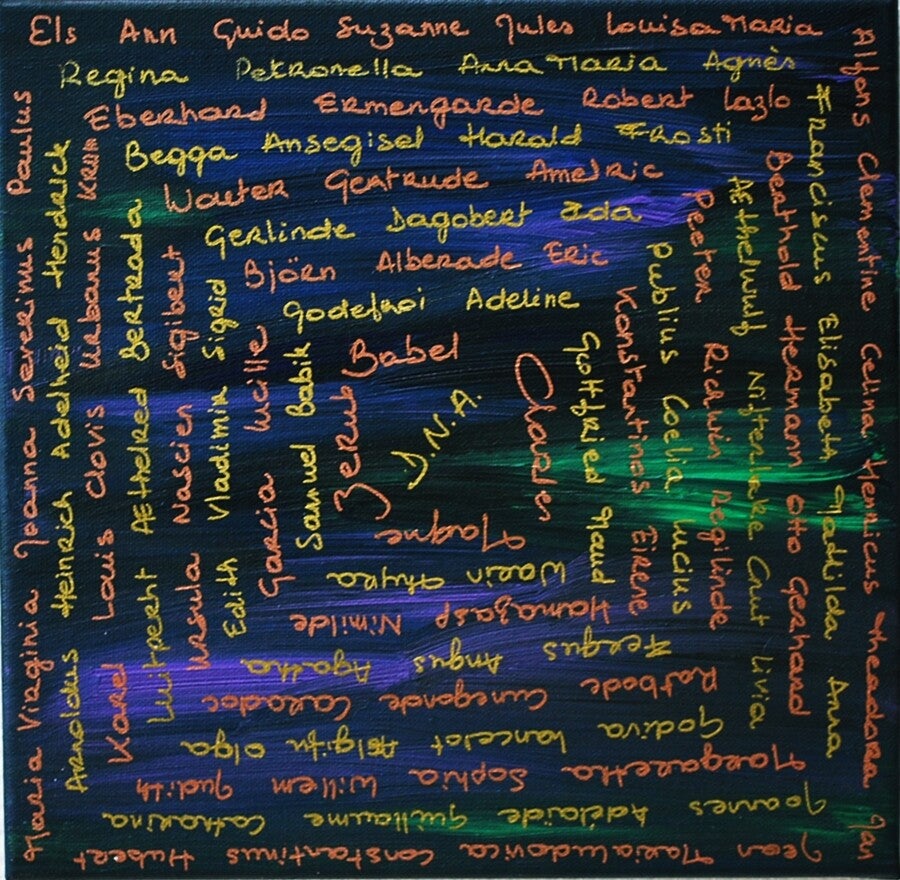 Els Ann Guido Suzanne Jules Louisa Maria
Alfons Clementine Celina Henricus Theadora Jan
Jean Maria Ludovica Constantinus Hubert
Maria Virginia Joanna Severinus Paulus
Regina Petronella Anna Maria Agnès
Franciscus Elisabeth Mathilda Anna
Joannes Adelaïde Guillaume Catharina
Arnoldus Heinrich Adelheid Hendrick
Eberhard Ermengarde Robert Lazlo
Berthold Hermann Otto Gerhard
Margaretha Sophia Willem Judith
Karel Louis Clovis Urbanus Krum
Begga Ansegisel Harald Frosti
Aethelwulf Nifterlake Cnut Livia
Godiva Lancelot Aelgifu Olga
Luitpert Aethelred Bertrada
Wouter Gertrude Amelric
Peeter Richwin Regilinde
Ratbode Cunegonde Caradoc
Ursula Nascien Sigibert
Gerlinde Dagobert Ada
Publius Coelia Lucius
Fergus Angus Agatha
Edith Vladimir Sigrid
Björn Alberade Eric
Konstantinos Eirene
Hamazasp Nimilde
Garcia Lucille
Godefroi Adeline
Gottfried Maud
Warin Thyra
Samuel Babik
Babel
Charles
Magne
Zerub
D.N.A.